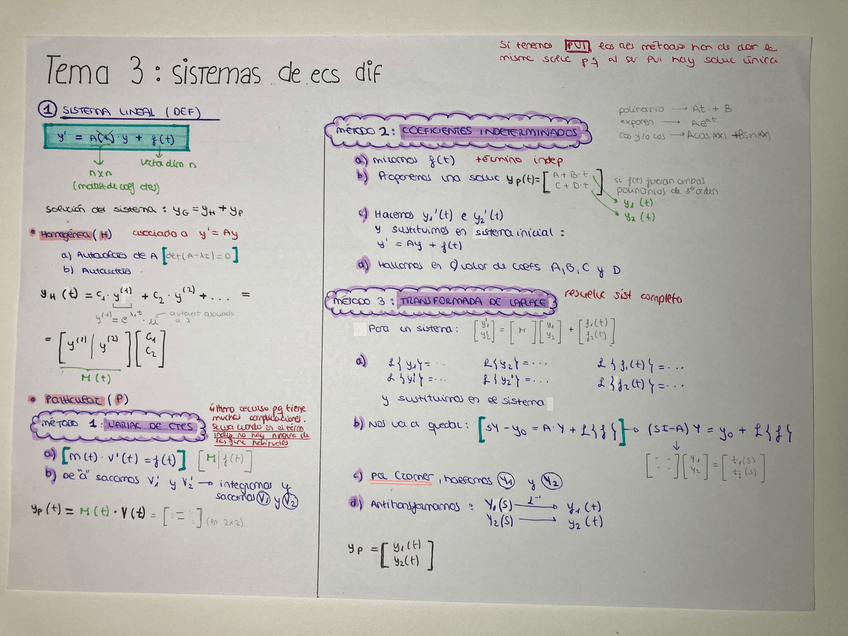 Tema 3: sistemas de ecs dif
Si tenemos PVI, los tres métodos han de dar la
misma soluc pq al ser PVI hay soluc única
① SISTEMA LINEAL (DEF)
y' = A(x)·y + f(t)
n x n
vector dim n
(matriz de coef ctes)
solución del sistema: yG = yH + yP
• Homogénea (H) asociado a y' = Ay
a) Autovalores de A [det(A-λI)=0]
b) Autovects
yH(t) = C₁·y⁽¹⁾ + C₂·y⁽²⁾ + ... =
y⁽¹⁾ = e^(λ₁t)·u autovect asociado
a λ
= [y⁽¹⁾ | y⁽²⁾] [C₁ C₂]
M(t)
• Particular (P)
MÉTODO 1: VARIAC DE CTES
último recurso pq tiene
muchas complicaciones.
a) [M(t)·V'(t) = f(t)] [M | f(t)]
b) De "a" sacamos V₁' y V₂' → integramos y
sacamos V₁ y V₂
yP(t) = M(t)·V(t) = [ ] (en 2x2)
MÉTODO 2: COEFICIENTES INDETERMINADOS
polinomio → At + B
expon → Ae^(at)
cos y/o cos → Acos(kx) + Bsin(kx)
a) miramos f(t) término indep
b) Proponemos una soluc yP(t) = [A + B·t C + D·t]
si f(t) fueran ambos
polinomios de 1º orden
y₁(t)
y₂(t)
c) Hacemos y₁'(t) e y₂'(t)
y sustituimos en sistema inicial:
y' = Ay + f(t)
d) Hallamos el valor de coefs A, B, C y D
MÉTODO 3: TRANSFORMADA DE LAPLACE resuelve sist completo
Para un sistema: [y₁' y₂'] = [M] [y₁ y₂] + [f₁(t) f₂(t)]
a) L{y₁} = ... L{y₂} = ... L{f₁(t)} = ...
L{y₁'} = ... L{y₂'} = ... L{f₂(t)} = ...
y sustituimos en el sistema
b) Nos va a quedar: [sY - y₀ = A·Y + L{f}] → (SI-A)Y = y₀ + L{f}
[ ] [Y₁ Y₂] = [t₁(s) t₂(s)]
c) Por Cramer, hallamos Y₁ y Y₂
d) Antitransformamos: Y₁(s) L⁻¹→ y₁(t)
Y₂(s) → y₂(t)
yP = [y₁(t) y₂(t)]